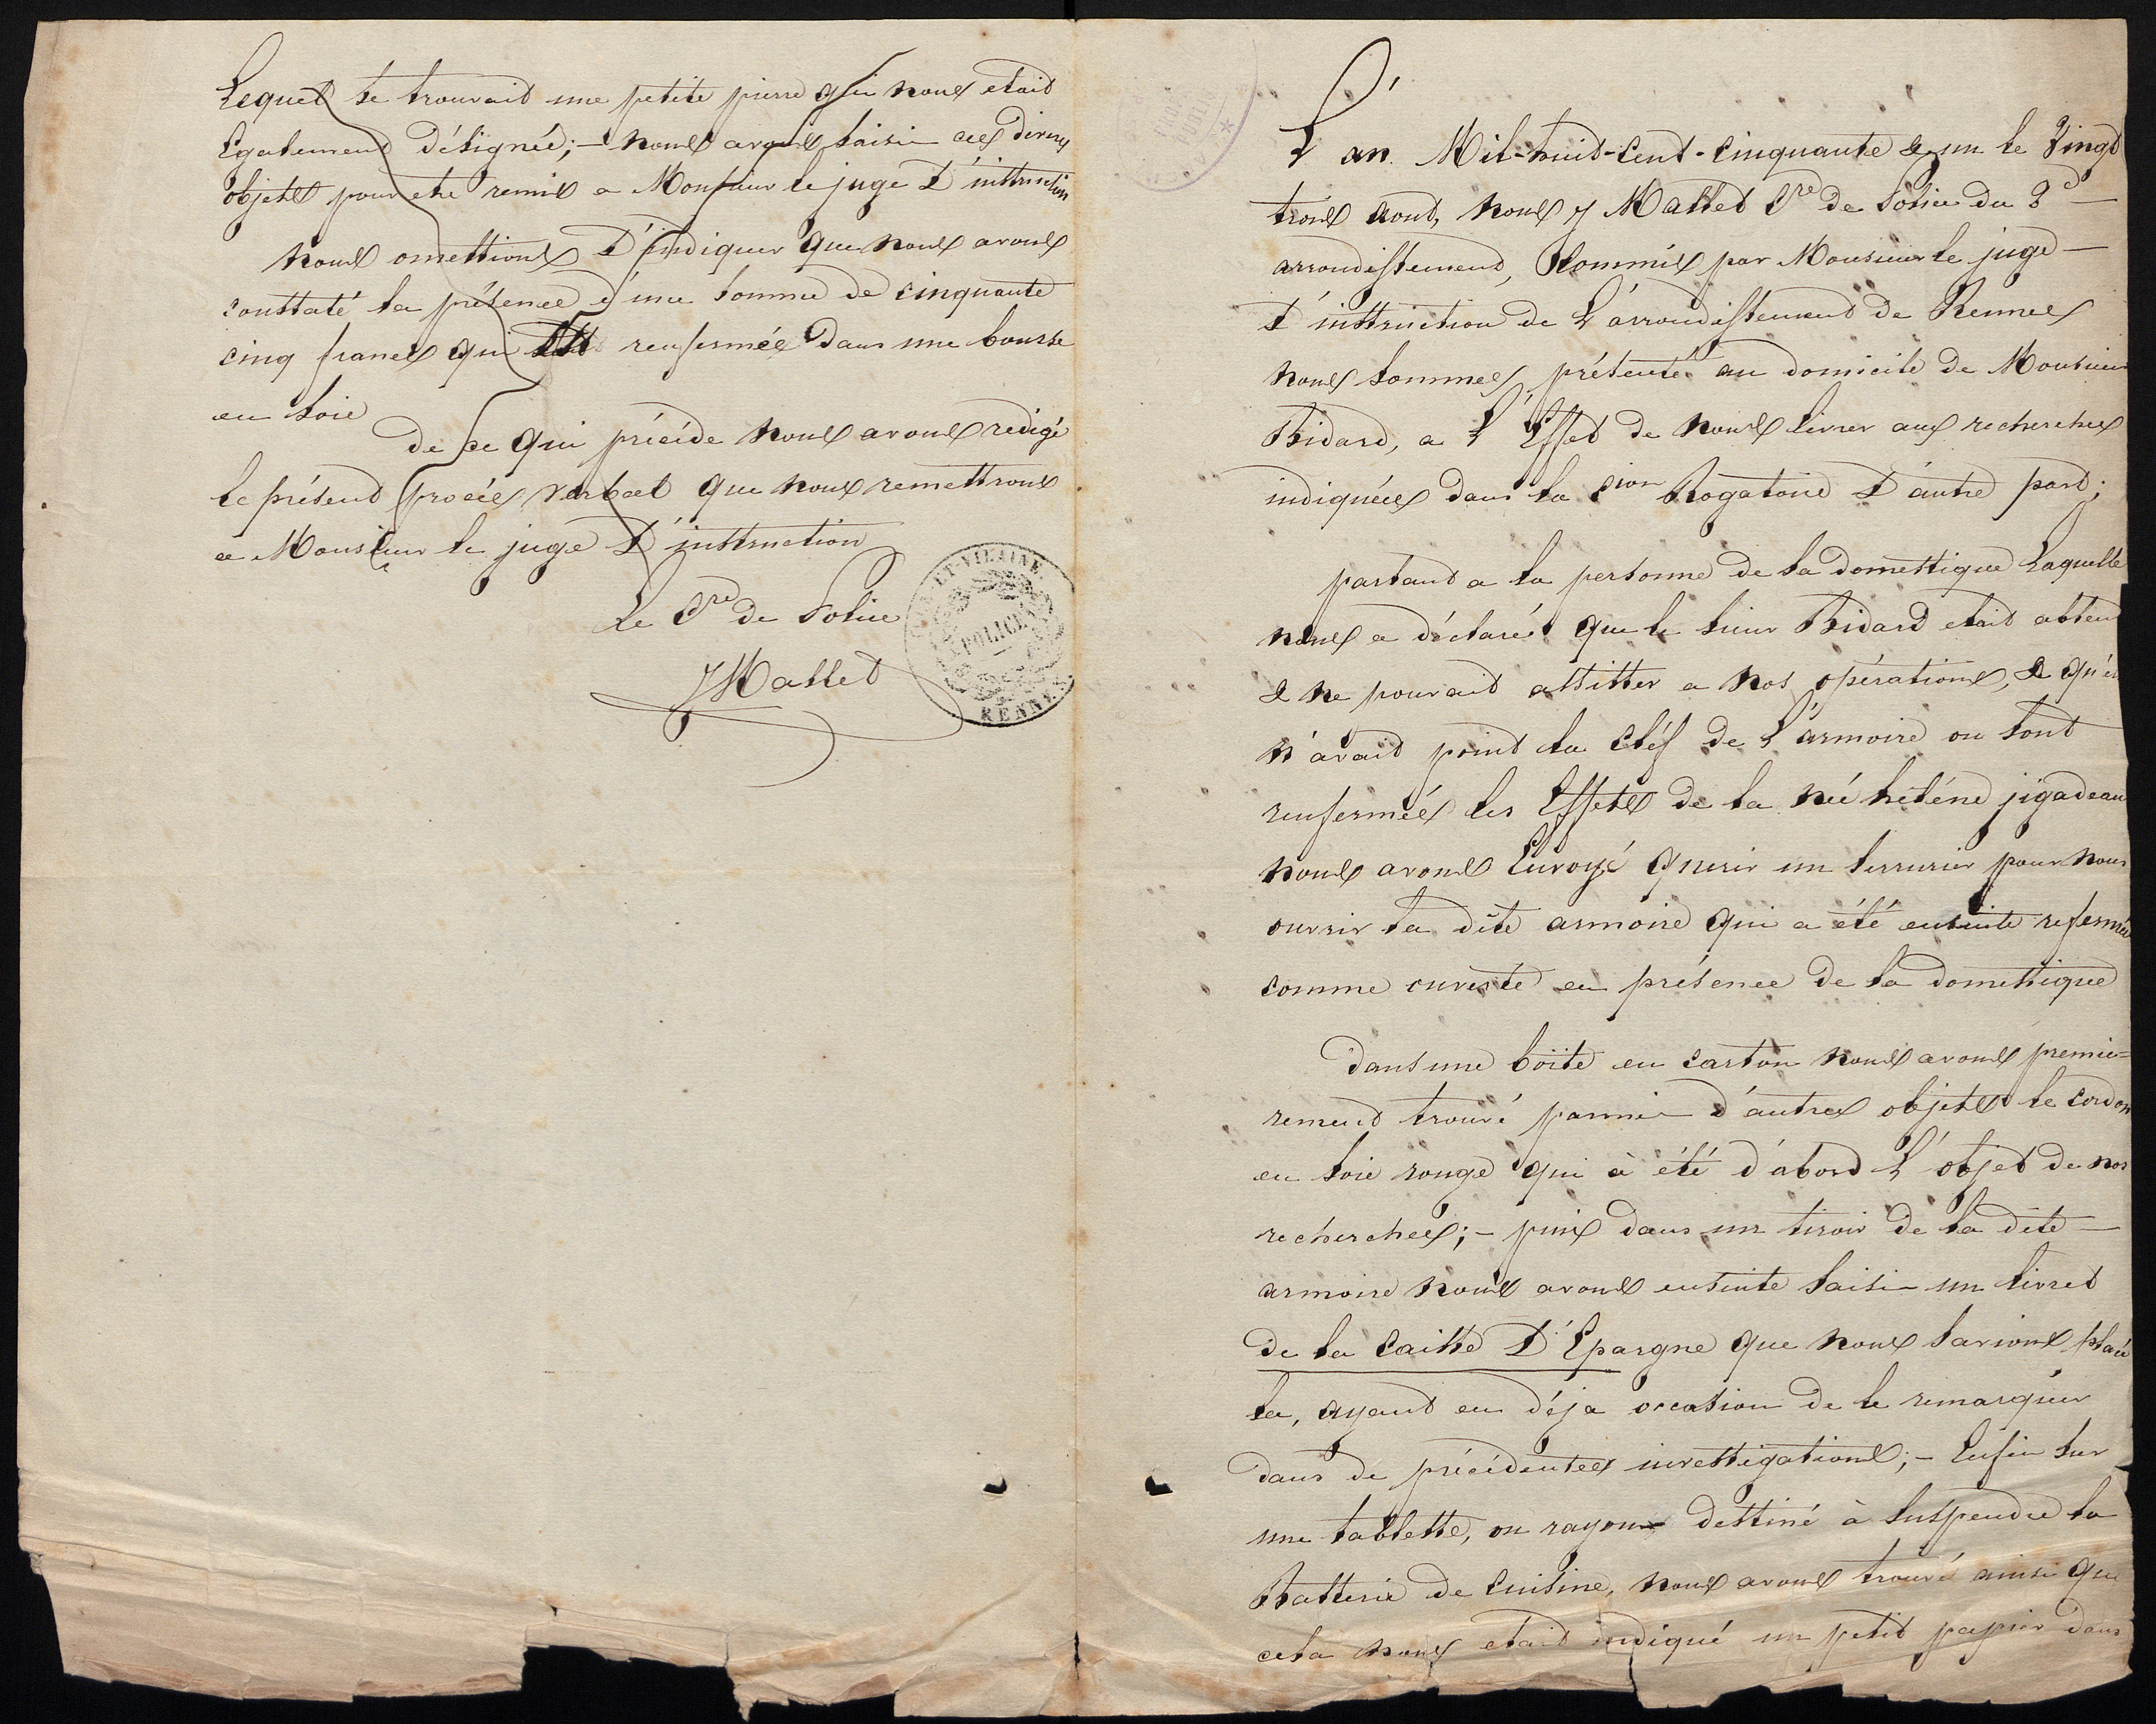 L'an Mil-huit-cent-cinquante & un le Vingt
trois aout, nous J Mallet Cre de Police du 2e
arrondissement, Commis par Monsieur le juge
d'instruction de L'arrondissement de Rennes
nous sommes présenté au domicile de Monsieur
Bidard, a L'Effet de nous livrer aux recherches
indiquées dans la Cion Rogatoire D'autre part;
parlant a la personne de sa domestique Laquelle
nous a déclaré que le sieur Bidard etait absent
& ne pouvait assister a nos opérations, & qu'il
n'avait point la cléf de L'armoire ou sont
renfermés les Effets de la née heléne jégadeau
nous avons Envoyé querir un serrurier pour nous
ouvrir la dite armoire qui a été ensuite refermée
comme ouverte en présence de la domestique
Dans une boîte en carton nous avons premie=
rement trouvé parmi d'autres objets le cordon
en soie rouge qui à été d'abord L'objet de nos
recherches; - puis dans un tiroir de la dite
armoire nous avons ensuite saisi un livret
de la caisse D'Epargne que nous savions placé
la, ayant eu déja occasion de le remarquer
dans de précédentes investigations; - Enfin sur
une tablette, ou rayon destiné à suspendre la
Batterie de Cuisine, nous avons trouvé ainsi que
cela nous etait indiqué un petit papier dans
Lequel se trouvait une petite pierre qui nous etait
Egalement désignée; - nous avons saisi ces divers
objets pour etre remis a Monsieur le juge D'instruction
nous omettions D'indiquer que nous avons
constaté la présence d'une somme de cinquante
cinq francs qui est renfermée dans une bourse
en soie
de ce qui précède nous avons redigé
le présent procès verbal que nous remettrons
a Monsieur le juge D'instruction
Le Cre de Police
JMallet
ET-VILAINE
POLICE
RENNES